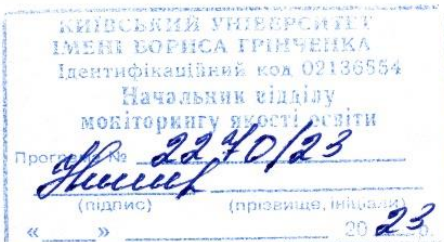 КИЇВСЬКИЙ УНІВЕРСИТЕТ
ІМЕНІ БОРИСА ГРІНЧЕНКА
Ідентифікаційний код 02136554
Начальник відділу
моніторингу якості освіти
Програма № 2270/23
(підпис) (прізвище, ініціали)
« » 20 23 р.